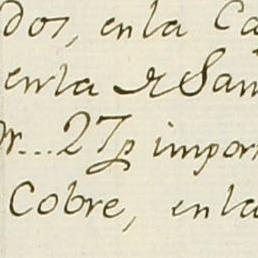 dos, en la Ca
en la de San
27 p impor
Cobre, en la